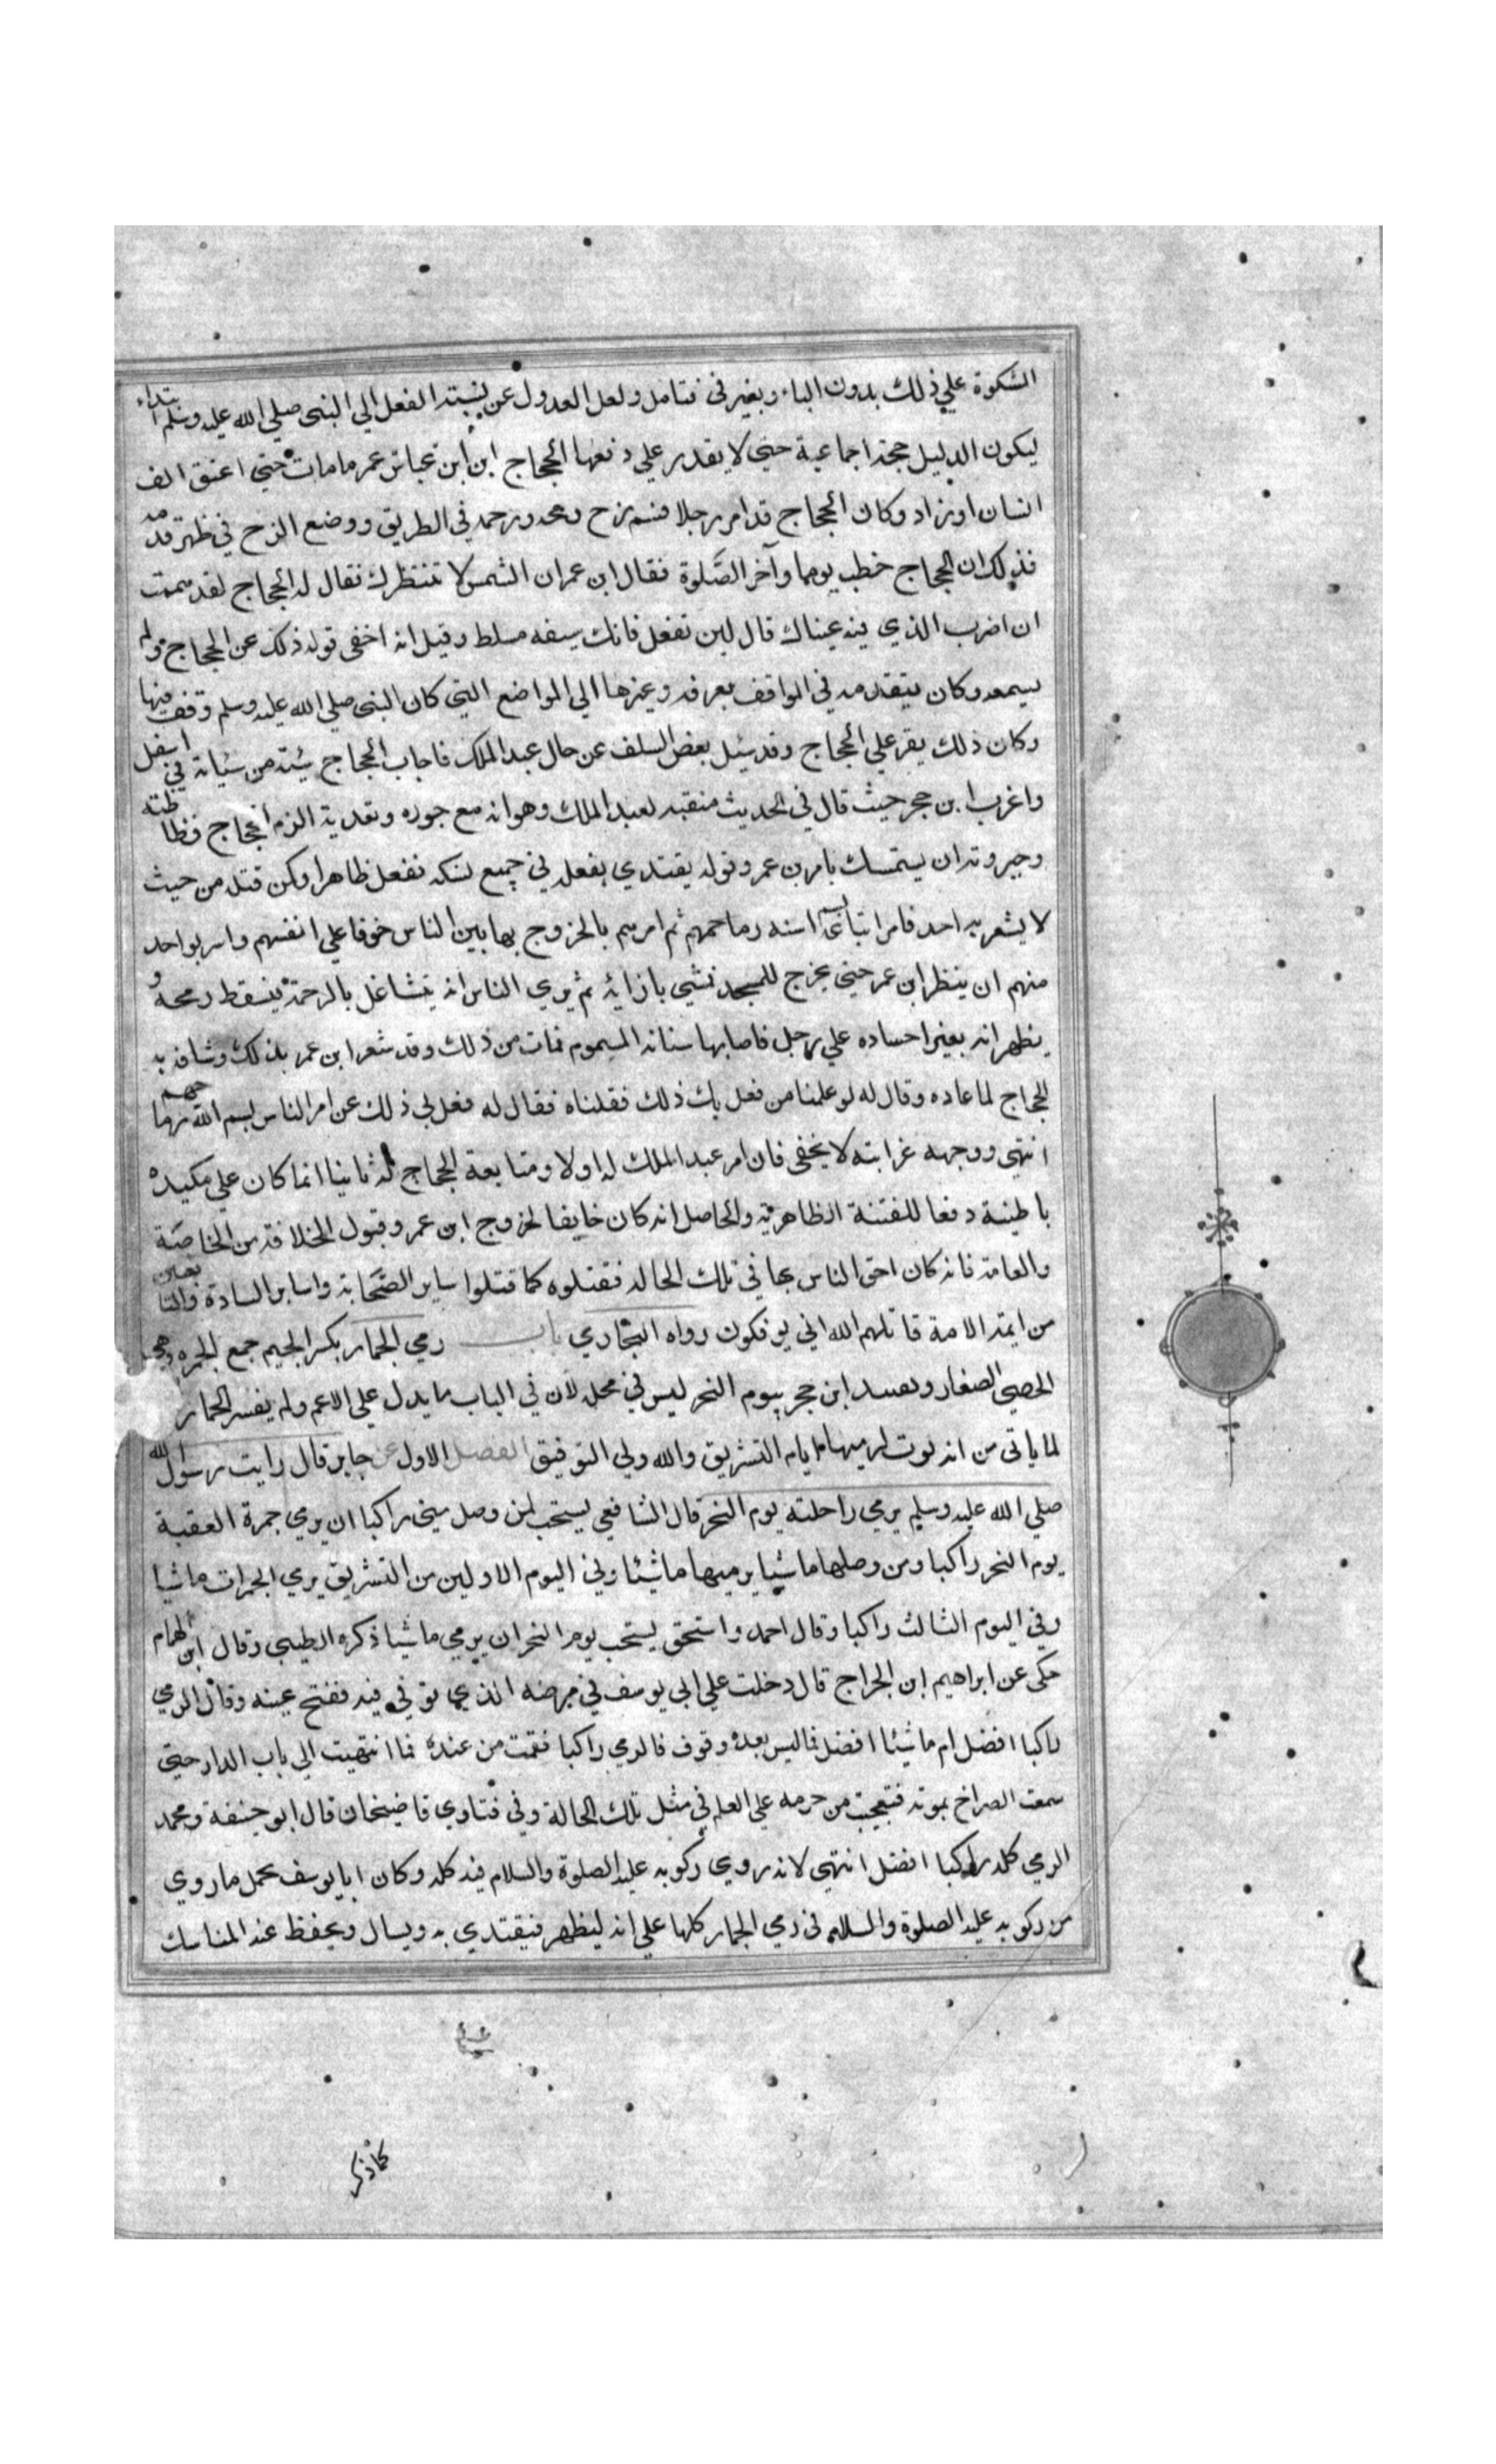 الشكوة علي ذلك بدون الباء وبغير في فتامل ولعل العدول عن نسبتة الفعل الي النبي صلي الله عليه وسلم ابتداء
ليكون الدليل حجة اجماعية حتي لا يقدر علي دفعها الحجاج ابن ابن عباس عمر ما مات حتي اعتق الف
انسان او زاد وكان الحجاج قد امر رجلا فسم زج رمحه وزحمه في الطريق ووضع الزج في ظهر قدمه
فذلك ان الحجاج خطب يوما وآخر الصلوة فقال ابن عمر ان الشمس لا تنتظرك فقال له الحجاج لقد هممت
ان اضرب الذي فيه عيناك قال لين تفعل فانك سفيه مسلط وقيل انه اخفي قوله ذلك عن الحجاج ولم
يسمعه وكان يتقدمه في المواقف بعرفه وغيرها الي المواضع التي كان النبي صلي الله عليه وسلم وقف فيها
وكان ذلك يقر علي الحجاج وقد سئل بعض السلف عن حال عبد الملك فاجاب الحجاج سيئة من سيئاته في اسفل
واغرب ابن حجر حيث قال في الحديث منقبه لعبد الملك وهو انه مع جوره وتعديه الزم الحجاج فظاظته
وجبروته ان يستمسك بامر بن عمر وقوله يقتدي بفعله في جميع نسكه ففعل ظاهرا وكن قتله من حيث
لا يشعر به احد فامر اتباعه اسنه رماحهم ثم امرهم بالخروج بها بين الناس خوفا علي انفسهم واسر بواحد
منهم ان ينتظر ابن عمر حتي يخرج للمسجد فمشي بازايه ثم يري الناس انه يتشاغل بالزحمة فيسقط رمحه و
يظهر انه بغير احساده علي رجل فاصابها سنانه المسموم فمات من ذلك وقد شعر ابن عمر بذلك وشافه به
الحجاج لما عاده وقال له لو علمنا من فعل بك ذلك فقلناه فقال له فعل بي ذلك عن امر الناس بسم الله رماحهم
انتهي ووجهه غرابته لا يخفي فان امر عبد الملك له اولا ومتابعة الحجاج له ثانيا انما كان علي مكيدة
باطنية دفعا للفتنة الظاهرية والحاصل انه كان خايفا لخروج ابن عمر وقبول الخلافة من الخاصة
والعامة فانه كان احق الناس بها في تلك الحاله فقتلوه كما قتلوا ساير الصحابة واساير السادة والتابعين
من ايمة الامة قاتلهم الله اني يوفكون رواه البخاري باب رمي الجمار بكسر الجيم جمع الجمره وهي
الحصي الصغار وتعبيد ابن حجر بيوم النحر ليس في محله لان في الباب ما يدل علي الاعم ولم يفسر الجمار
لما ياتي من انه لرميها ايام التشريق والله ولي التوفيق الفصل الاول عن جابر قال رايت رسول الله
صلي الله عليه وسلم يرمي راحلته يوم النحر قال الشافعي يستحب لمن وصل مني راكبا ان يرمي جمرة العقبة
يوم النحر راكبا ومن وصلها ماشيا يرميها ماشيا وفي اليوم الاولين من التشريق يرمي الجمرات ماشيا
وفي اليوم الثالث راكبا وقال احمد واسحق يستحب يوم النحر ان يرمي ماشيا ذكره الطيبي وقال ابن الهمام
حكي عن ابراهيم ابن الجراح قال دخلت علي ابي يوسف في مرضه الذي توفي فيه ففتح عينه وقال الرمي
راكبا افضل ام ماشيا افضل فاليس بعده وقوف فالرمي راكبا فقمت من عنده فما انتهيت الي باب الدار حتي
سمعت الصراخ بموته فتعجبت من حرصه علي العلم في مثل تلك الحالة وفي فتاوي قاضيخان قال ابو حنيفة ومحمد
الرمي كله راكبا افضل انتهي لانه روي ركوبه عليه الصلوة والسلام فيه كله وكان ابا يوسف يحمل ما روي
من ركوبه عليه الصلوة والسلام في رمي الجمار كلها علي انه ليظهر فيقتدي به ويسال ويحفظ عنه المناسك
كما ذكر